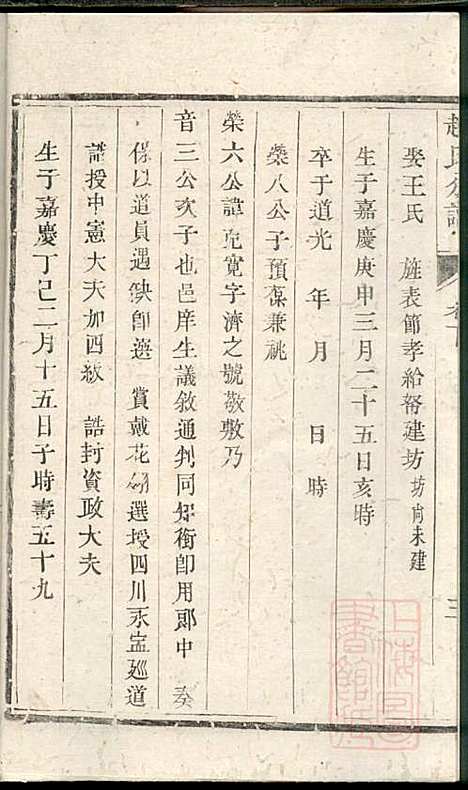 趙氏分譜 卷下 三
娶王氏 旌表節孝給帑建坊坊尚未建
生于嘉慶庚申三月二十五日亥時
卒于道光 年 月 日 時
榮八公子預葆兼祧
榮六公諱 寬字濟之號敬敷乃
音三公次子也邑庠生議敘通判同知銜即用郎中 奏
保以道員遇缺即選 賞戴花翎選授四川永寍廵道
誥授中憲大夫加四級 誥封資政大夫
生于嘉慶丁巳二月十五日子時壽五十九
上海圖書館藏